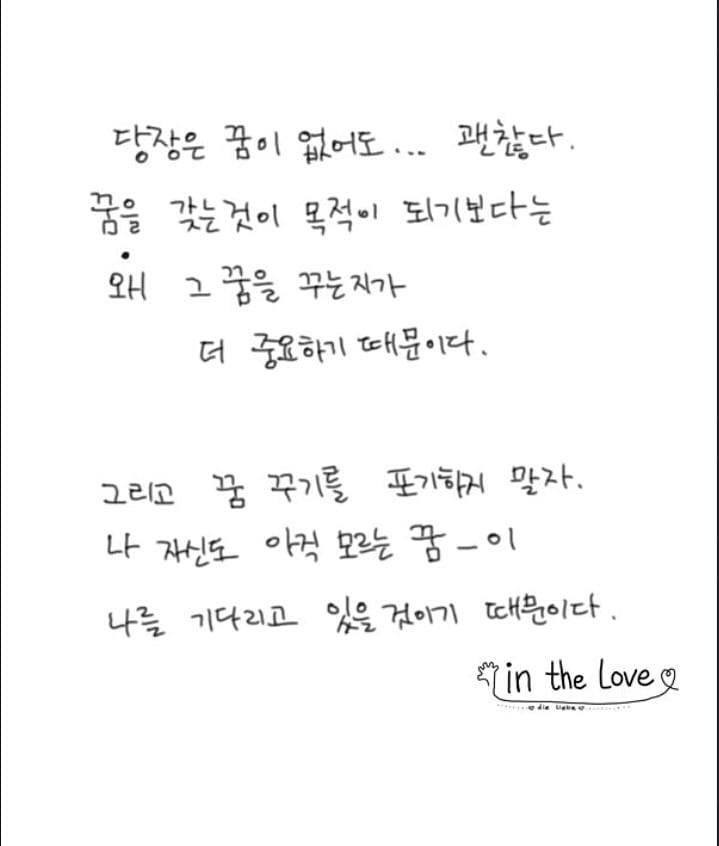 당장은 꿈이 없어도... 괜찮다.
꿈을 갖는것이 목적이 되기보다는
왜 그 꿈을 꾸는지가
더 중요하기 때문이다.
그리고 꿈 꾸기를 포기하지 말자.
나 자신도 아직 모르는 꿈_이
나를 기다리고 있을 것이기 때문이다.
in the Love
die Liebe